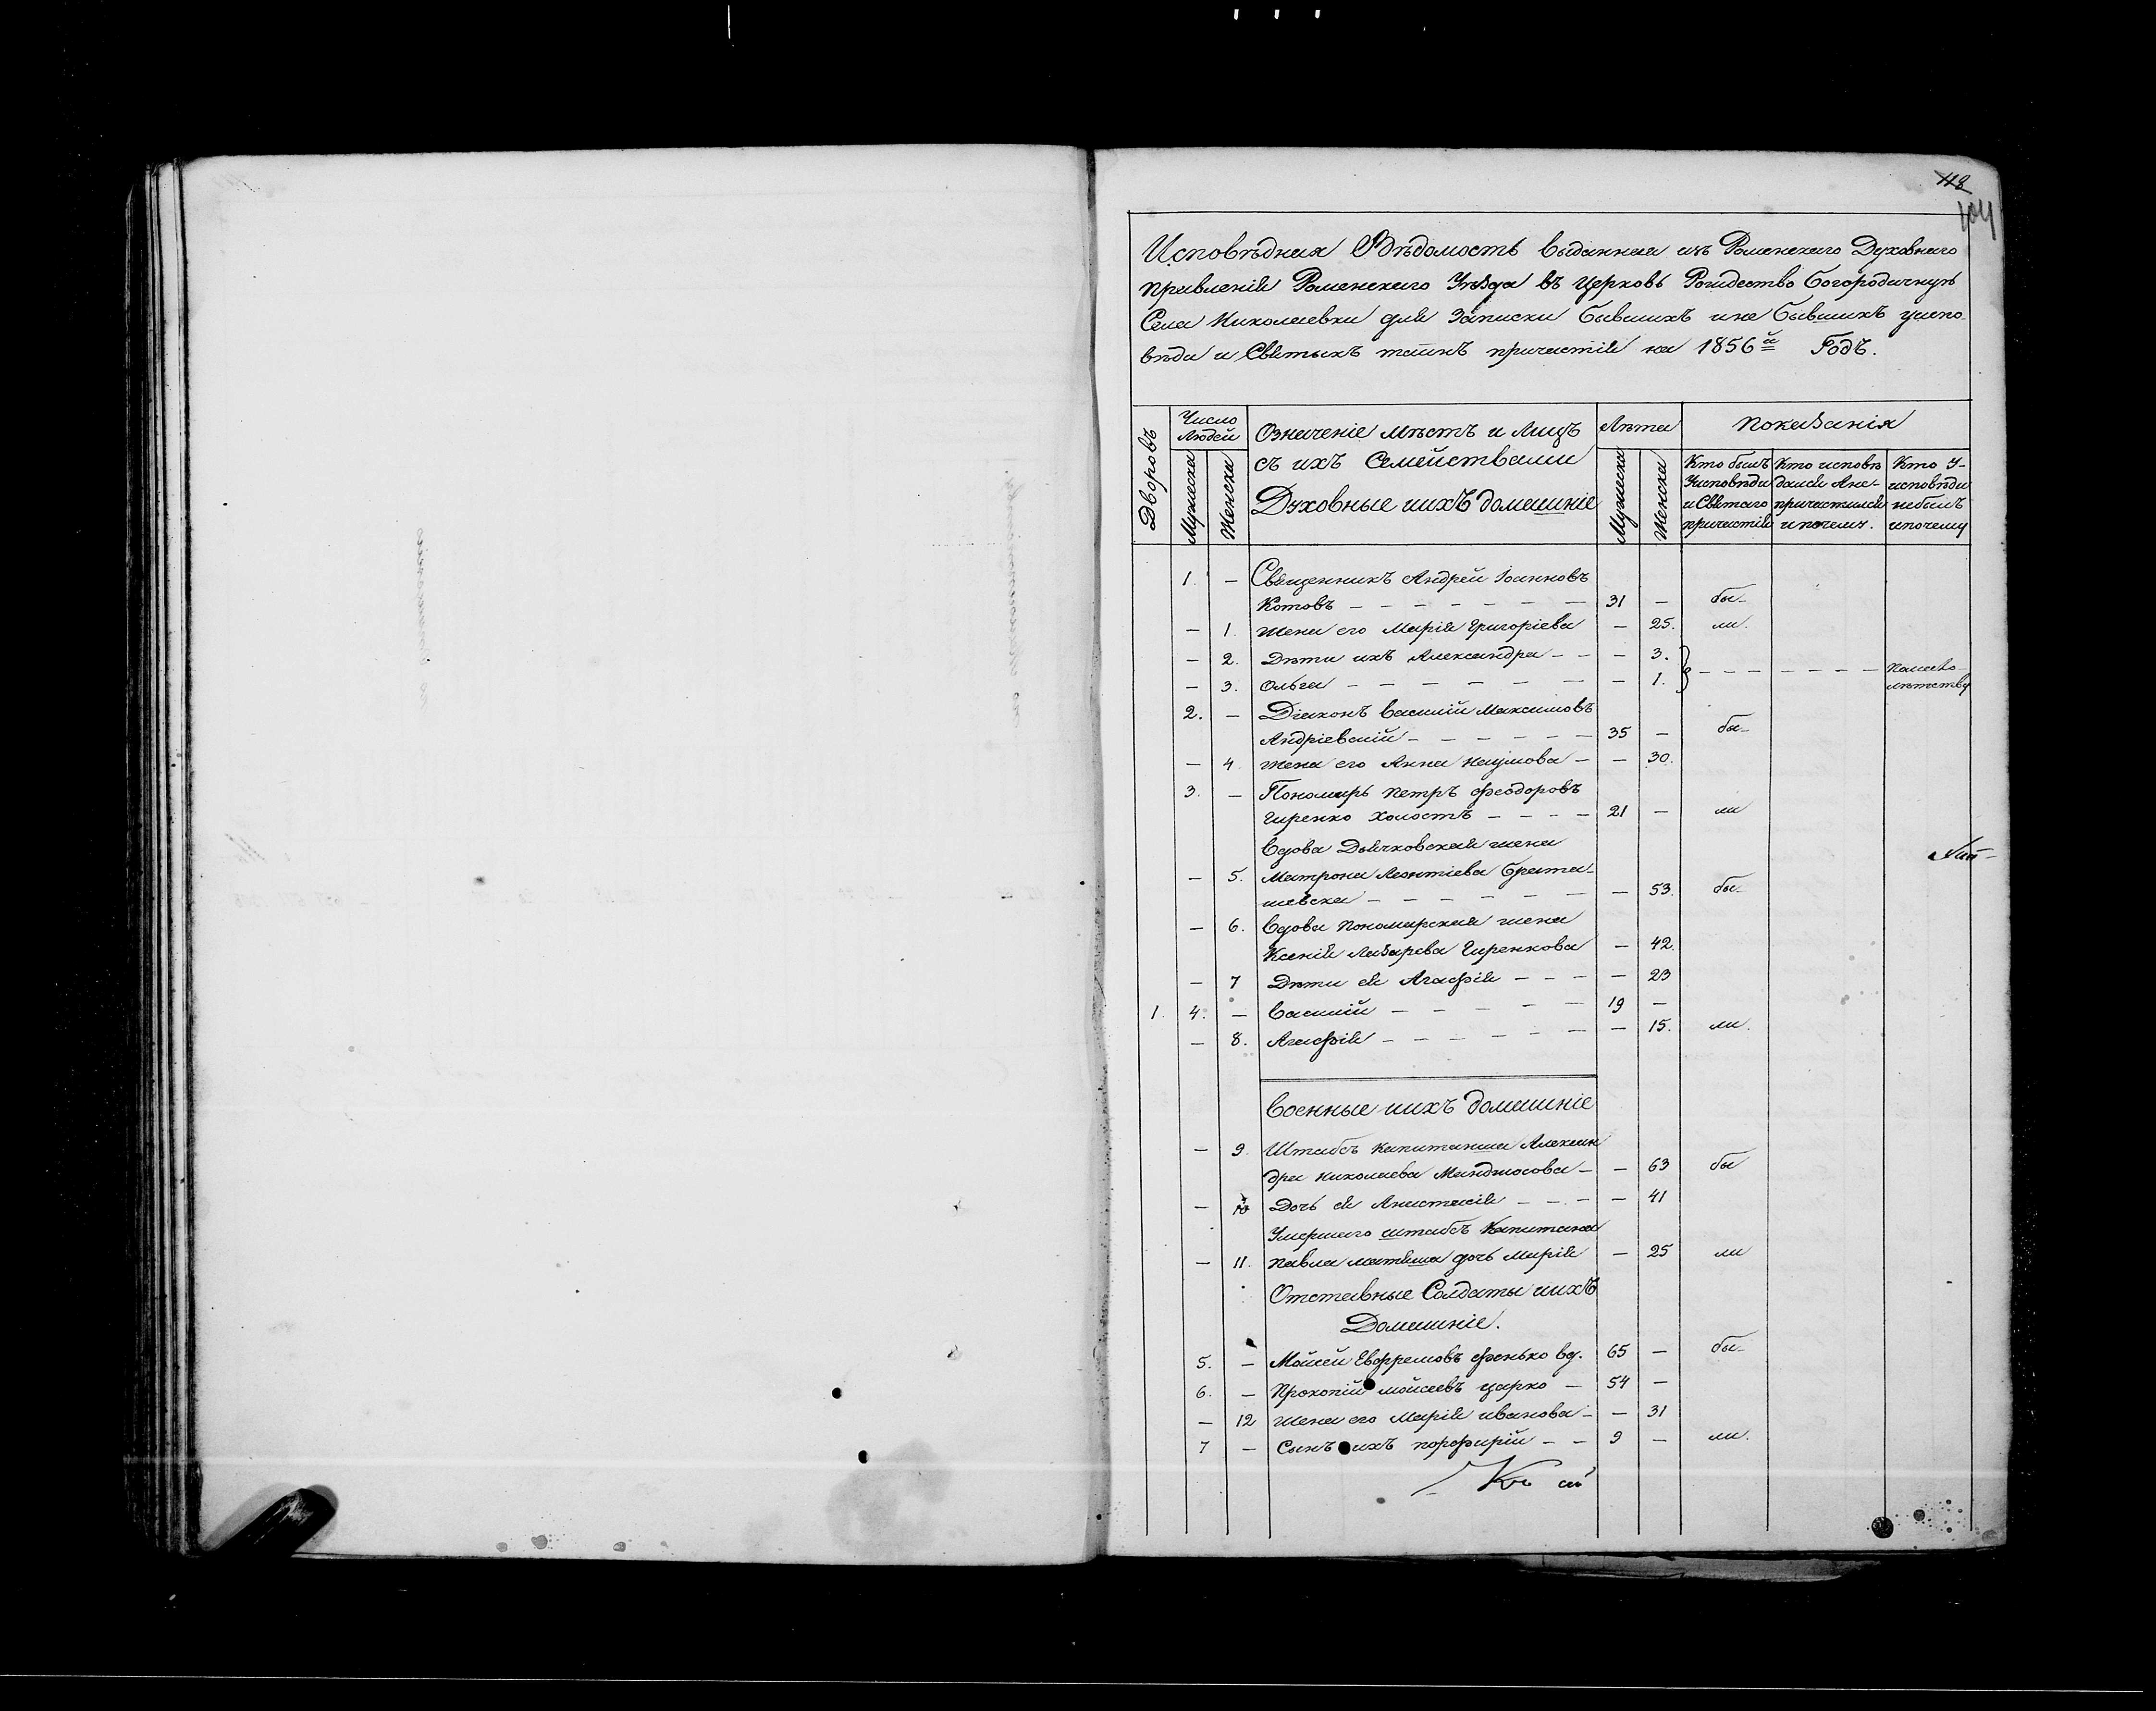 118
104
Исповѣдная Вѣдомость выданная изъ Роменскаго Духовнаго
Правленія Роменскаго Уѣзда въ Церковь Рождество Богородичную
Села Николаевки для Записки бывшихъ и не бывшихъ у испо-
вѣди и Святыхъ таинъ причастія на 1856й Годъ.
Дворовъ
Число Людей
Мужеска
Женска
Означеніе мѣстъ и лицъ
съ ихъ Семействами
Духовные и ихъ домашніе
Лѣта
Мужеска
Женска
Показанія
Кто былъ Уисповѣди и Святаго причастія
Кто исповѣ дался Ане- причастился и почему.
Кто У- исповѣди небылъ ипочему
1. — Священникъ Андрей Іоанновъ
Котовъ — — — — — — — 31 — бы-
— 1. жена его Марія Григоріева — 25. ли.
— 2. Дѣти ихъ Александра — — — 3.
— 3. Ольга — — — — — — — 1. — — — — — — — помало- лѣтству
2. — Діаконъ Василій Максимовъ
Андріевскій — — — — — — 35 — бы-
— 4. жена его Анна Наумова — — 30.
3. — Пономарь Петръ Феодоровъ
Гиренко холостъ — — — — 21 — ли
Вдова Дьячковская жена
— 5. Матрона Леонтіева Брата-
шевска — — — — — — — 53. бы-
— 6. Вдова Пономарская жена
Ксенія Лазарева Гиренкова — 42.
— 7 Дѣти ея Агафія — — — — 23
1. 4. — Василій — — — — — 19 —
— 8. Агафія — — — — — — — 15. ли.
Военные и ихъ домашніе
— 9. Штабсъ капитанша Алексан
дра Николаева Манджосова — — 63 бы
— 10 Дочь ея Анастасія — — — — 41
Умершаго штабсъ Капитана
— 11. Павла дочь Марія — 25 ли
Отставные Солдаты и ихъ
Домашніе.
5. — Мойсей Евфремовъ Фенько вд. 65 — бы-
6. — Прокопій Мойсеевъ Царко — 54 —
— 12 жена его Марія Иванова — — 31
7 — Сынъ ихъ Порфирій — — 9 — ли.